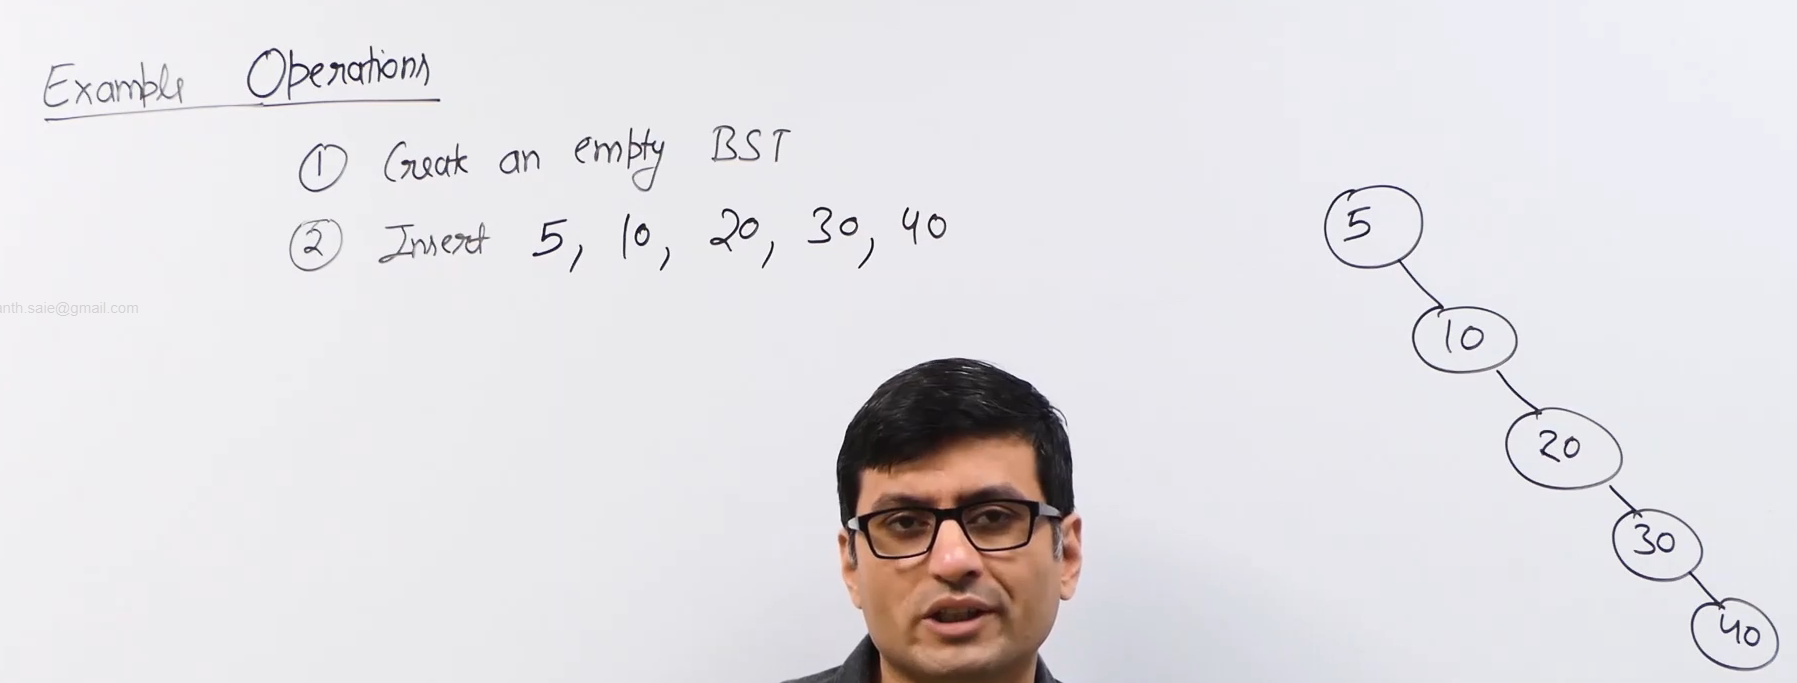 Example Operations
① Create an empty BST
② Insert 5, 10, 20, 30, 40
anth.saie@gmail.com
5
10
20
30
40